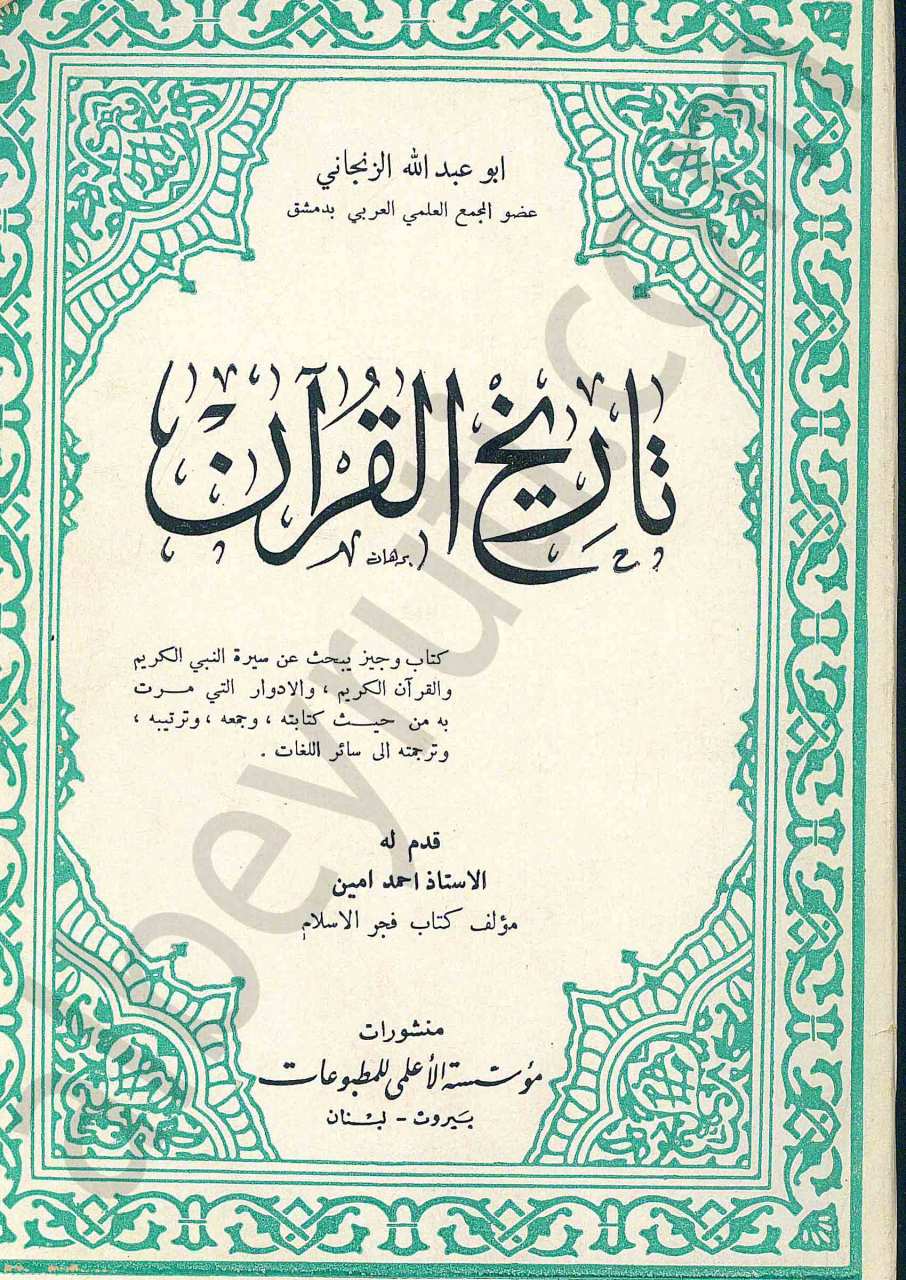 ابو عبد الله الزنجاني
عضو المجمع العلمي العربي بدمشق
تاريخ القرآن
برهان
كتاب وجيز يبحث عن سيرة النبي الكريم
والقرآن الكريم ، والادوار التي مرت
به من حيث كتابته ، وجمعه ، وترتيبه ،
وترجمته الى سائر اللغات .
قدم له
الاستاذ احمد امين
مؤلف كتاب فجر الاسلام
منشورات
مؤسسة الأعلمي للمطبوعات
بيروت - لبنان